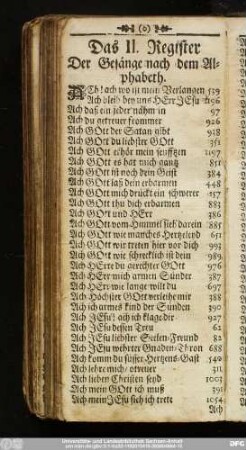 (o)
Das II. Register
Der Gesänge nach dem Al-
phabeth.
ACh! ach wo ist mein Verlangen 539
Ach bleib bey uns HErr JEsu 1196
Ach daß ein jeder nähm in 97
Ach du getreuer frommer 926
Ach GOtt der Satan gibt 918
Ach GOtt du liebster GOtt 361
Ach GOtt erhör mein seufftzen 1197
Ach GOtt es hat mich gantz 851
Ach GOtt ist noch dein Geist 384
Ach GOtt laß dein erbarmen 448
Ach GOtt mich drückt ein schwerer 257
Ach GOtt thu dich erbarmen 883
Ach GOtt und HErr 386
Ach GOtt vom Himmel sieh darein 885
Ach GOtt wie manches Hertzeleid 651
Ach GOtt wir treten hier vor dich 993
Ach GOtt wie schrecklich ist dein 989
Ach HErre du gerechter GOtt 976
Ach HErr mich armen Sünder 387
Ach HErr wie lange wilt du 697
Ach Höchster GOtt verleihe mir 388
Ach ich armes kind der Sünden 390
Ach JEsu! ach ich klage dir 927
Ach JEsu dessen Treu 62
Ach JEsu liebster Seelen-Freund 82
Ach JEsu wehrter Gnaden-Thron 688
Ach komm du süsser Hertzens-Gast 540
Ach lehre mich, getreuer 311
Ach lieben Christen seyd 1003
Ach mein GOtt ich muß 391
Ach mein JEsu sieh ich trett 1054
Ach
Universitäts- und Landesbibliothek Sachsen-Anhalt
DFG